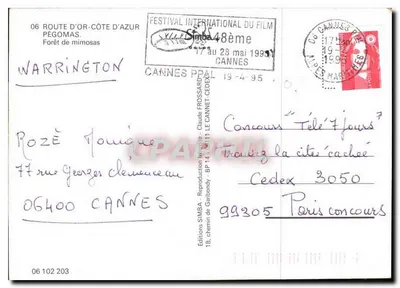 06 ROUTE D'OR-CÔTE D'AZUR
PÉGOMAS
Forêt de mimosas
WARRINGTON
FESTIVAL INTERNATIONAL DU FILM
48ème
17 au 28 mai 1995
CANNES
CANNES PPAL 19-4-95
CANNES PPAL
19-4
1995
ALPES MARITIMES
Simba
ROZÉ Monique
77 rue Georges Clemenceau
06400 CANNES
Editions SIMBA - Reproduction
Claude FROSSARD
18, chemin de Garibondy - BP 14 - 06111 LE CANNET-CEDEX
Concours "Télé 7 jours"
trouvez la cité cachée
Cedex 3050
99305 Paris concours
06 102 203